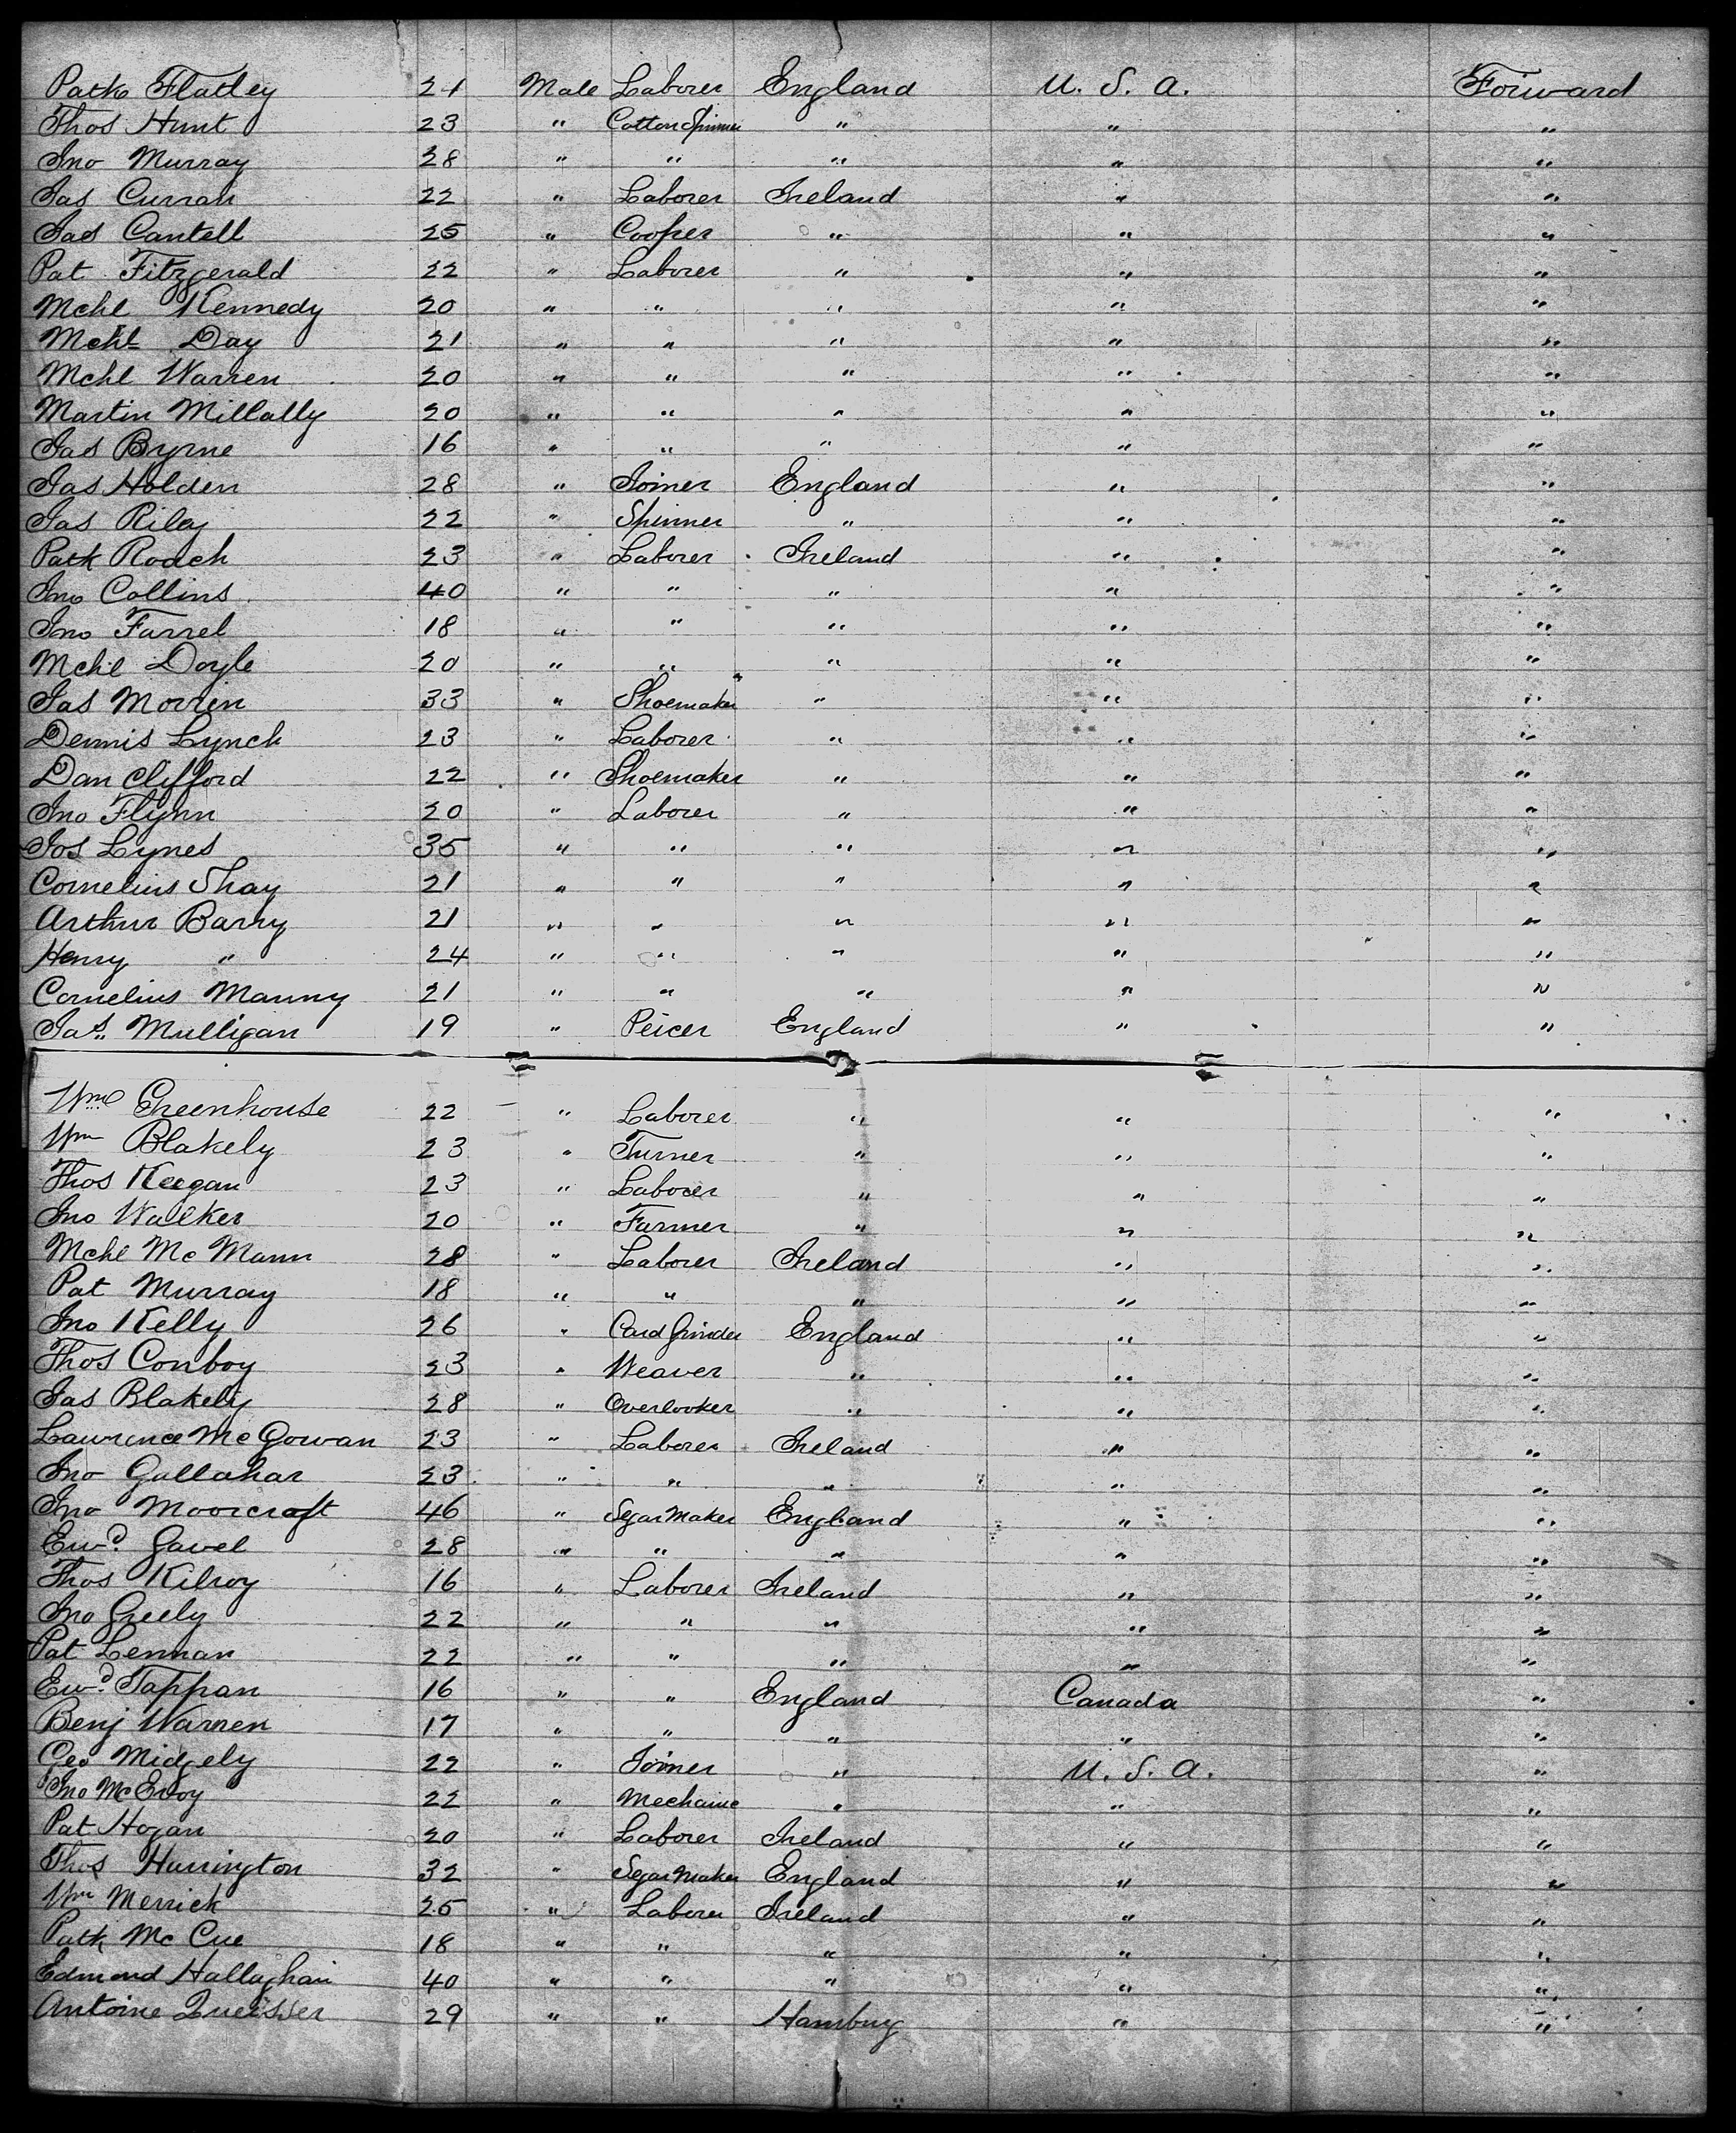 Patk Flatley 21 Male Laborer England U. S. A. Forward
Thos Hunt 23 " Cotton Spinner " " "
Jno Murray 28 " " " " "
Jas Curran 22 " Laborer Ireland " "
Jas Cantell 25 " Cooper " " "
Pat Fitzgerald 22 " Laborer " " "
Mchl Kennedy 20 " " " " "
Mchl Day 21 " " " " "
Mchl Warren 20 " " " " "
Martin Millally 20 " " " " "
Jas Byrne 16 " " " " "
Jas Holden 28 " Joiner England " "
Jas Riley 22 " Spinner " " "
Patk Roach 23 " Laborer Ireland " "
Jno Collins 40 " " " " "
Jno Farrel 18 " " " " "
Mchl Doyle 20 " " " " "
Jas Morrin 33 " Shoemaker " " "
Dennis Lynch 23 " Laborer " " "
Dan Clifford 22 " Shoemaker " " "
Jno Flynn 20 " Laborer " " "
Jos Lynes 35 " " " " "
Cornelius Shay 21 " " " " "
Arthur Barry 21 " " " " "
Henry " 24 " " " " "
Cornelius Manny 21 " " " " "
Jas. Mulligan 19 " Peicer England " "
Wm Greenhouse 22 " Laborer " " "
Wm Blakely 23 " Turner " " "
Thos Keegan 23 " Laborer " " "
Jno Walker 20 " Farmer " " "
Mchl Mc Mann 28 " Laborer Ireland " "
Pat Murray 18 " " " " "
Jno Kelly 26 " Card Grinder England " "
Thos Conboy 23 " Weaver " " "
Jas Blakely 28 " Overlooker " " "
Lawrence Mc Gowan 23 " Laborer Ireland " "
Jno Gallahar 23 " " " " "
Jno Moorcraft 46 " Segar Maker England " "
Ewd. Gavel 28 " " " " "
Thos Kilroy 16 " Laborer Ireland " "
Jno Greely 22 " " " " "
Pat Lennan 22 " " " " "
Ewd. Tappan 16 " " England Canada "
Benj Warren 17 " " " " "
Geo Midgely 22 " Joiner " U. S. A. "
Jno McEvoy 22 " Mechanic " " "
Pat Hogan 20 " Laborer Ireland " "
Thos Harrington 32 " Segar Maker England " "
Wm Merrick 25 " Laborer Ireland " "
Patk Mc Cue 18 " " " " "
Edmond Hallaghan 40 " " " " "
Antoine 29 " " Hamburg " "